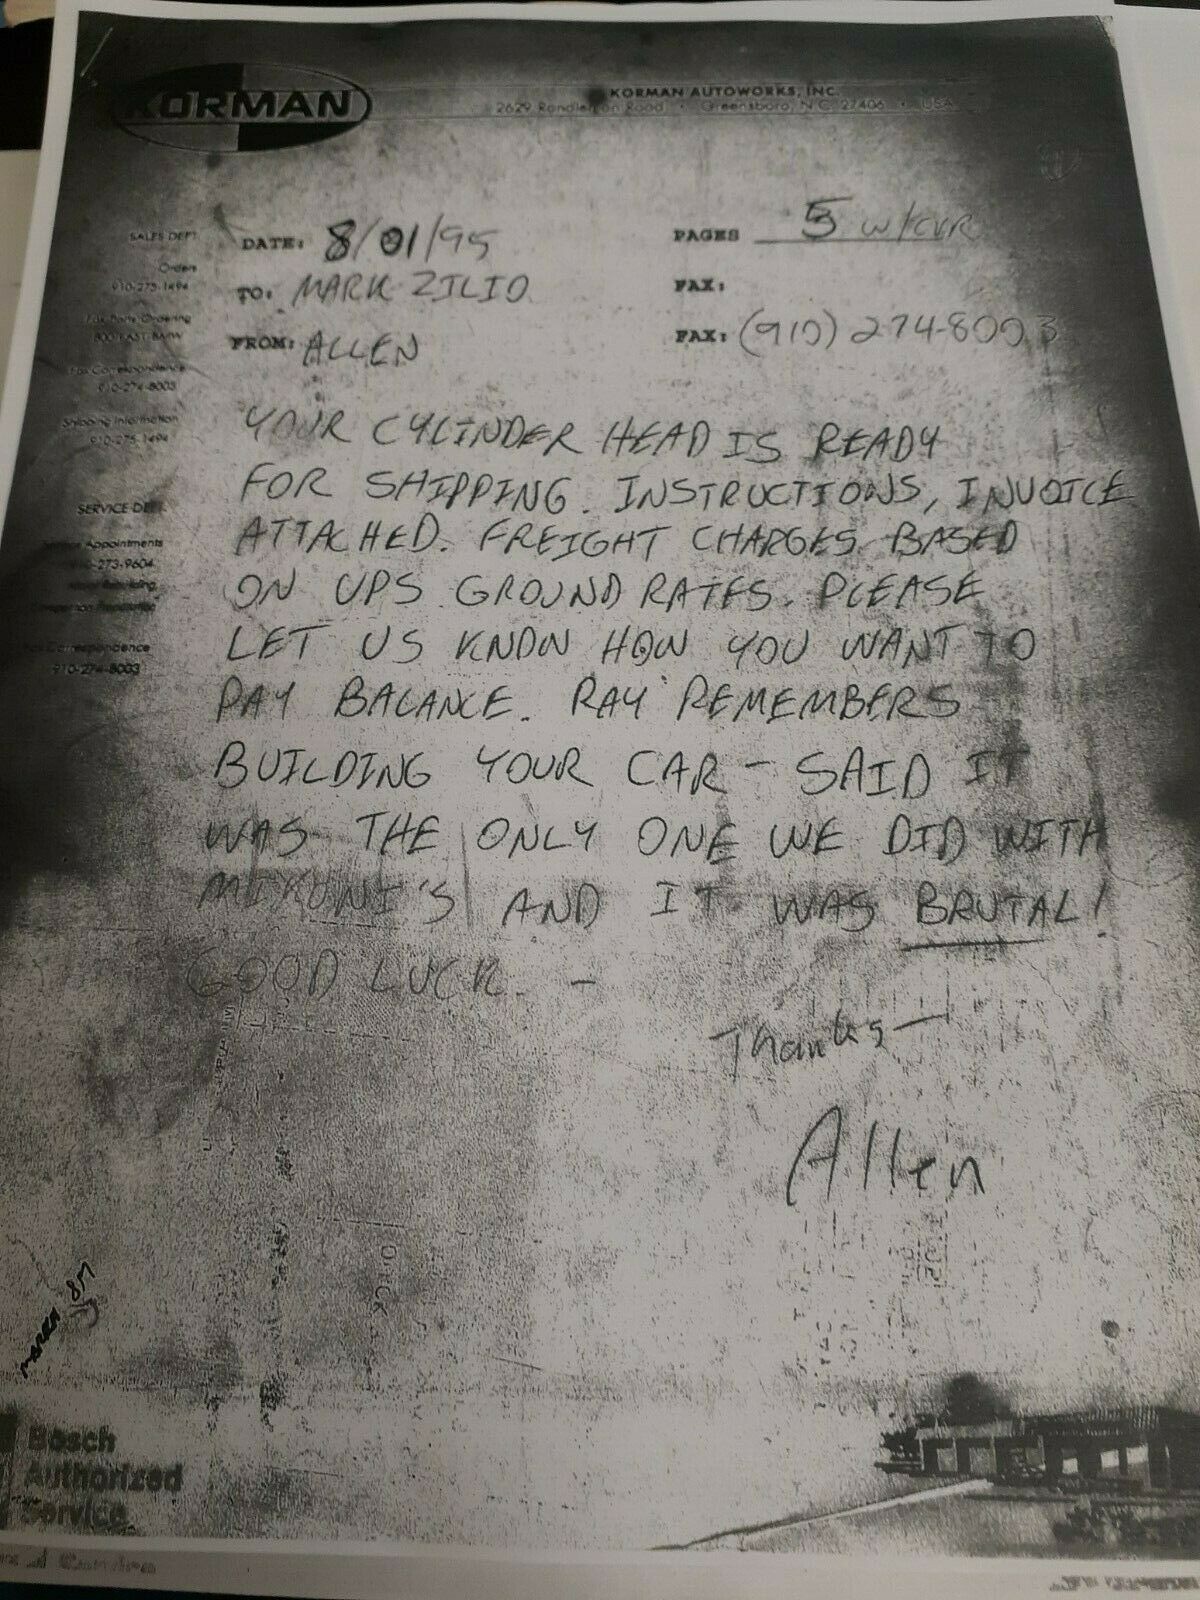 KORMAN
KORMAN AUTOWORKS, INC.
2629 Randleman Road • Greensboro, N.C. 27406 • USA
SALES DEPT.
Orders
910-275-1494
Fax Parts Ordering
800 FAST BMW
Fax Correspondence
910-274-8003
Shipping Information
910-275-1494
SERVICE DEPT.
Service Appointments
910-273-9604
Fax Correspondence
910-274-8003
DATE: 8/01/95
PAGES 5 W/CVR
TO: MARK ZILIO
FAX:
FROM: ALLEN
FAX: (910) 274-8003
YOUR CYLINDER HEAD IS READY
FOR SHIPPING. INSTRUCTIONS, INVOICE
ATTACHED. FREIGHT CHARGES BASED
ON UPS GROUND RATES. PLEASE
LET US KNOW HOW YOU WANT TO
PAY BALANCE. RAY REMEMBERS
BUILDING YOUR CAR - SAID IT
WAS THE ONLY ONE WE DID WITH
MIKUNI'S AND IT WAS BRUTAL!
GOOD LUCK. -
Thanks —
Allen
Bosch
Authorized
Service